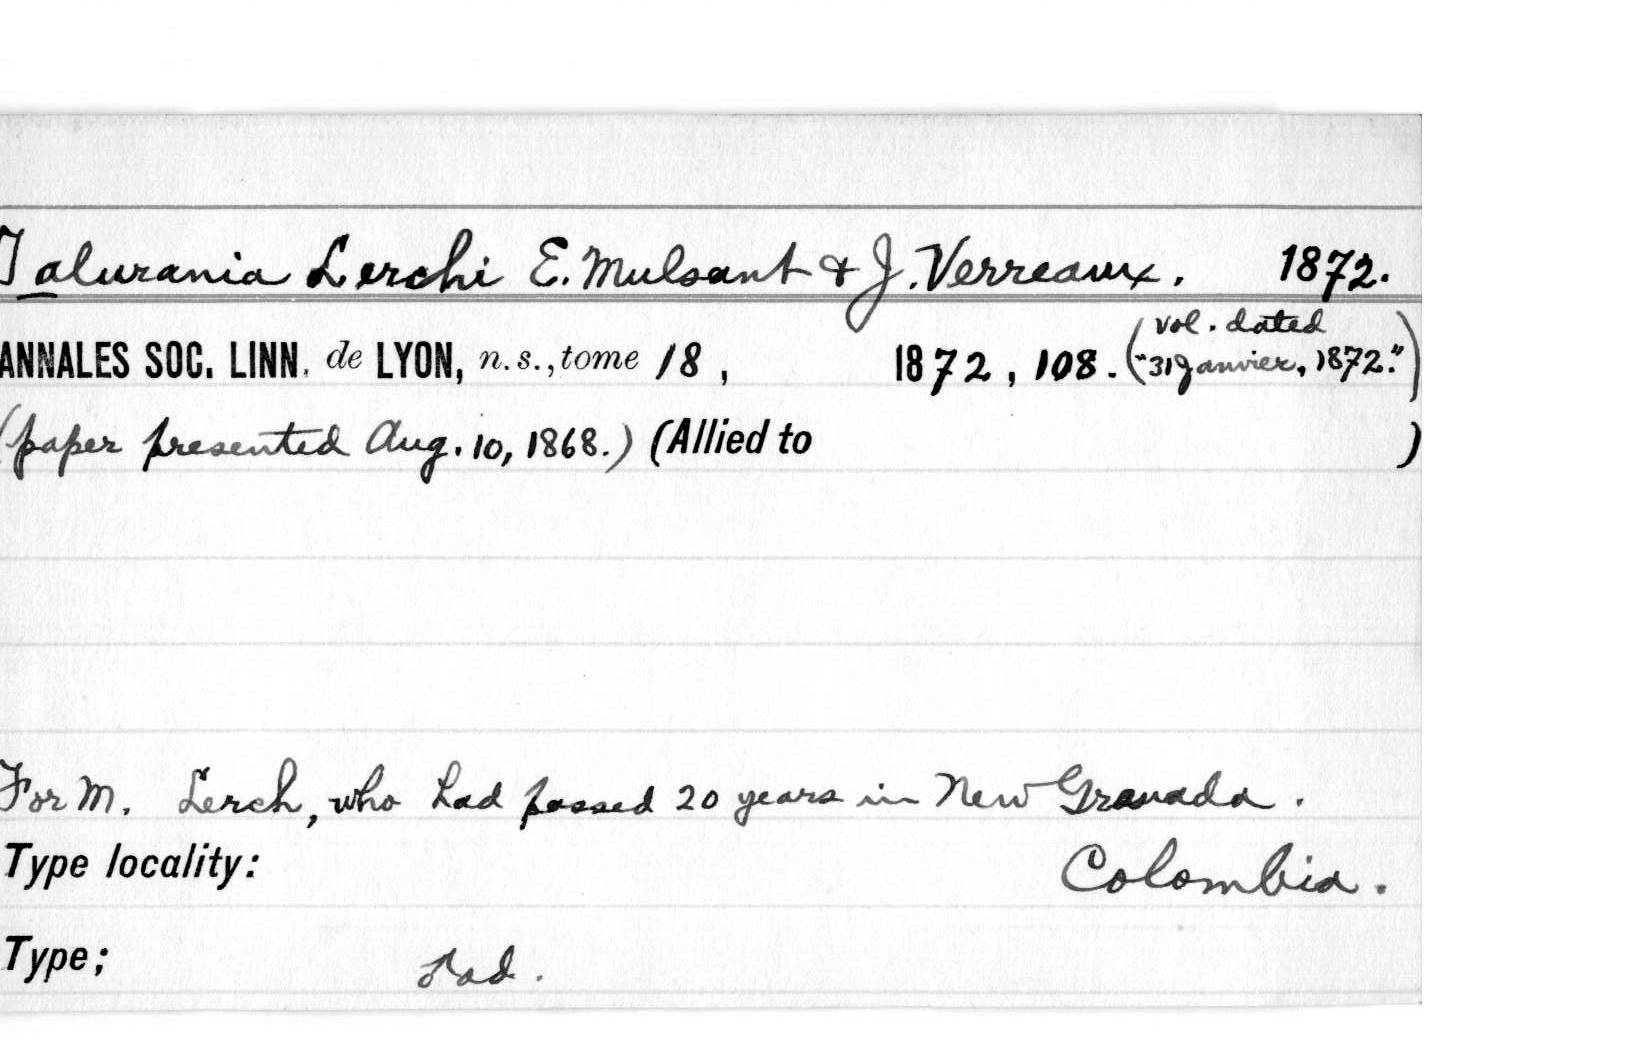 Talurania Lerchi E. Mulsant & J. Verreaux. 1872.
ANNALES SOC. LINN. de LYON, n.s., tome 18, 1872, 108. (vol. dated "31 Janvier, 1872.")
(paper presented Aug. 10, 1868.) (Allied to )
For M. Lerch, who had passed 20 years in New Granada.
Type locality: Colombia.
Type; Rad.